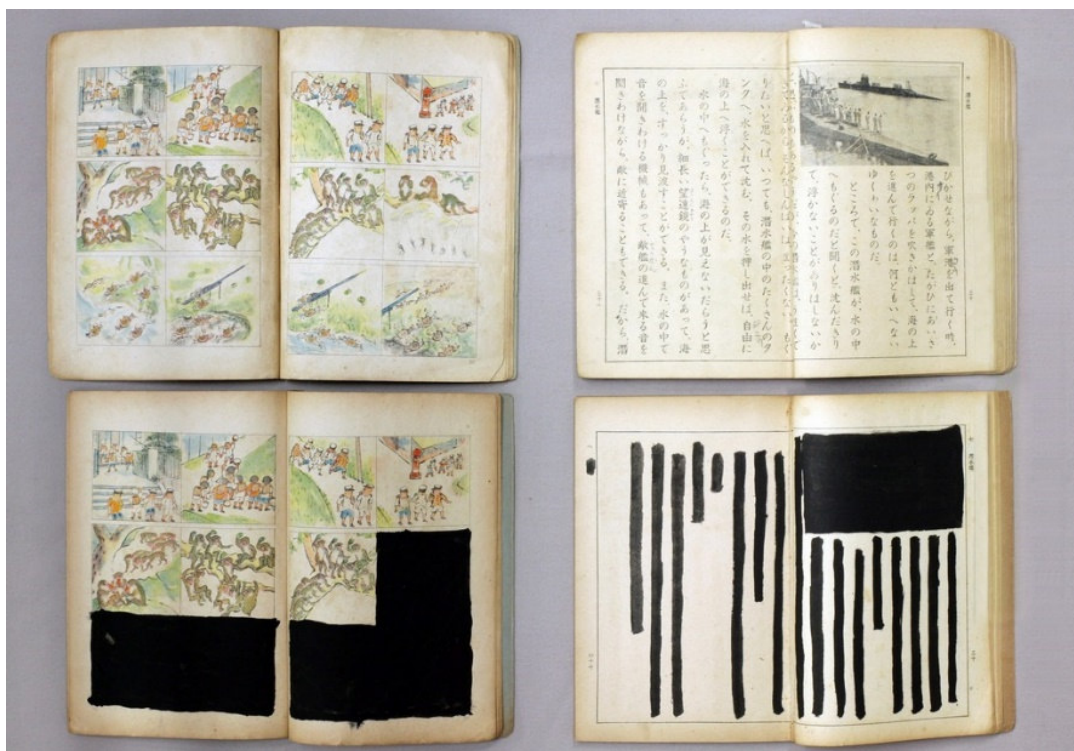 潜水艦
ひかせながら、軍港を出て行く時、
港内にゐる軍艦と、たがひにあいさ
つのラッパを吹きかはして、海の上
を進んで行くのは、何ともいへない
ゆくわいなものだ。
ところで、この潜水艦が、水の中
へもぐるのだと聞くと、沈んだきり
で、浮かないことがありはしないか
りたいと思へば、いつでも、潜水艦の中のたくさんのタ
ンクへ、水を入れて沈む。その水を押し出せば、自由に
海の上へ浮くことができるのだ。
水の中へもぐったら、海の上が見えないだらうと思
ふであらうが、細長い望遠鏡のやうなものがあって、海
の上を、すっかり見渡すことができる。また、水の中で
音を聞きわける機械もあって、敵艦の進んで来る音を
聞きわけながら、敵に近寄ることもできる。だから、潜
潜水艦
潜水艦